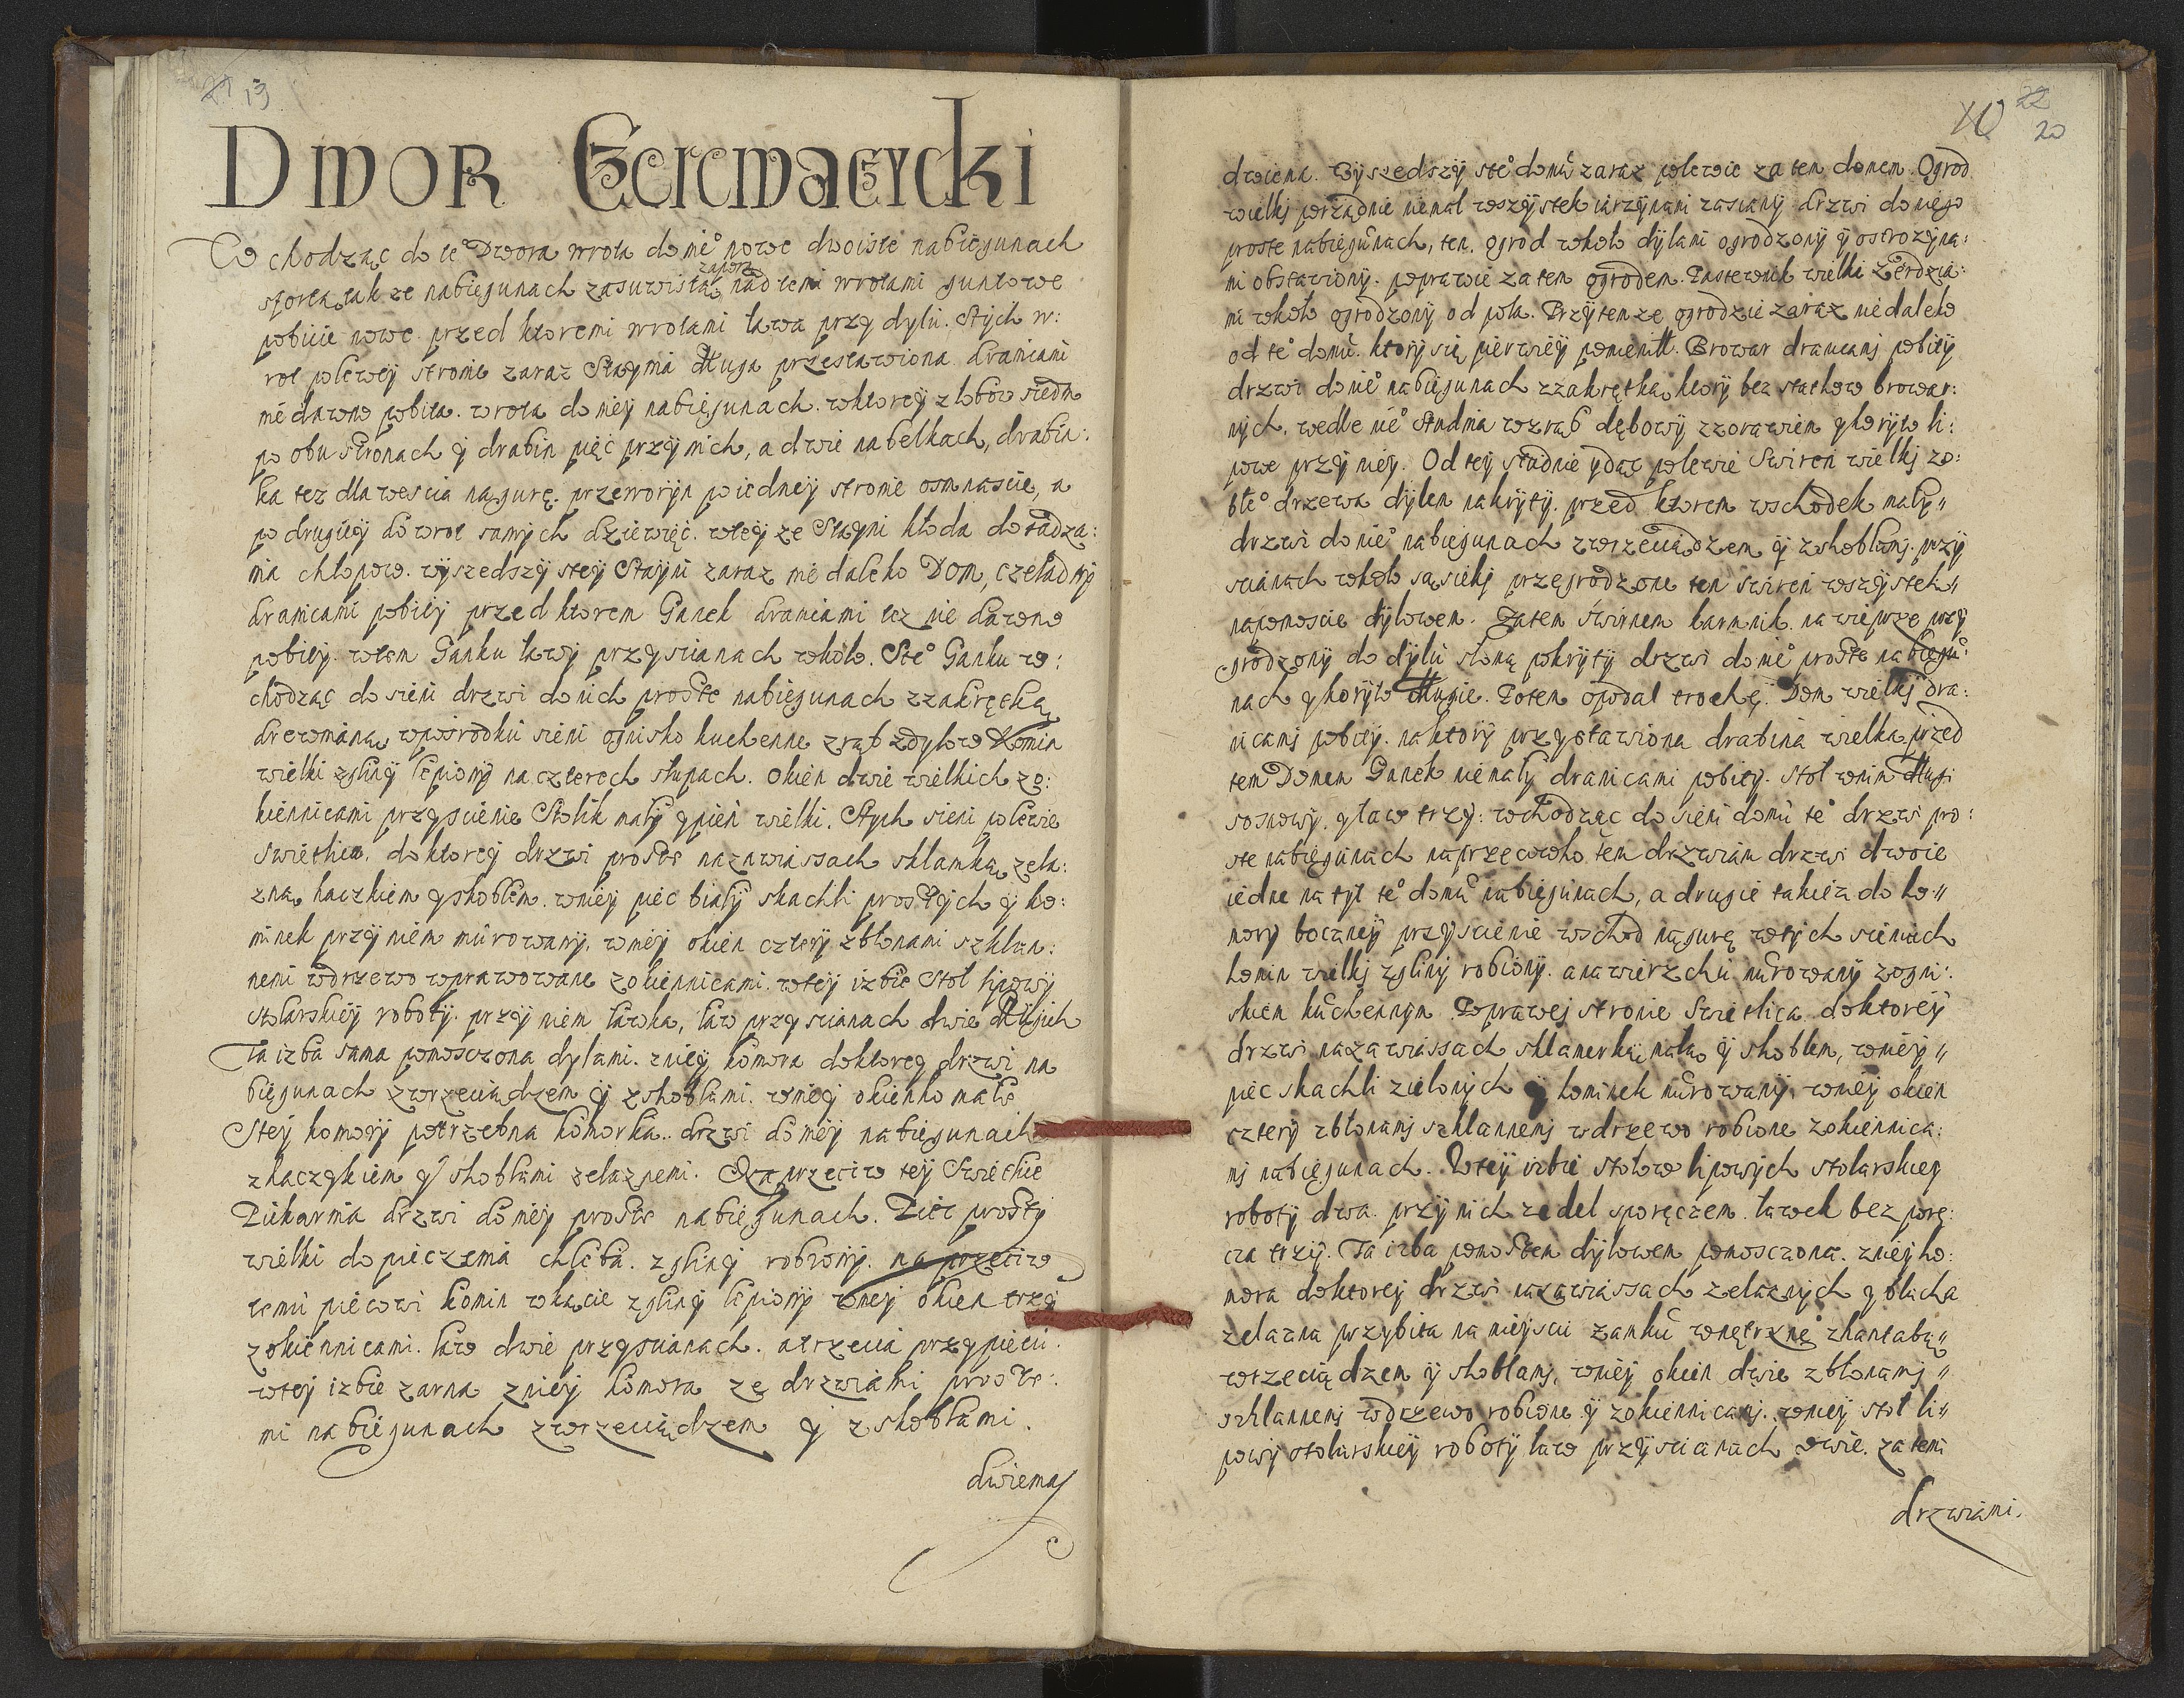 21 19
DWOR Czerewaczycki
Wchodząc do te° Dwora wrota do nie° nowe dwoiste nabiegunach
zaporą
sforta tak ze nabiegunach zasuwista nad temi wrotami guntowe
pobicie nowe przed ktoremi wrotami ława przy dylu. Stych w:
rot polewey stronie zaraz Staynia długa przestawiona dranicami
niedawno pobita. wrota do niey nabiegunach. wktorey złobow siedm
po obu stronach y drabin pięć przy nich, a dwie na belkach, drabin:
ka tez dla wescia nagurę. przeworyn po iedney stronie osmnascie, a
po drugiey do wrot samych dziewięć. wtey ze Stayni kłoda do sadza:
nia chłopow. wyszedszy stey Stayni zaraz nie daleko Dom, czeladny
dranicami pobity przed ktorem Ganek dranicami tez nie dawno
pobity. wtem Ganku ławy przy scianach wkoło. Ste° Ganku w:
chodząc do sieni drzwi do nich proste nabiegunach zzakrętką
drewnianą, wposrodku sieni ognisko kuchenne zrąb zdylow Komin
wielki zgliny lepiony na czterech słupach. okien dwie wielkich zo:
kiennicami przyscienie Stolik mały ypień wielki. Stych sieni polewie
Swietlica. do ktorey drzwi proste nazawiassach sklamką zela:
zną, haczkiem yskoblem. wniey piec biały skachli prostych y ko:
minek przy niem murowany. wniey okien cztery zbłonami szklan:
nemi wdrzewo wprawowane zokiennicami. wtey izbie Stoł lipowy
stolarskiey roboty. przy niem ławka, ław przy scianach dwie długich
Ta izba sama pomosczona dylami. zniey komora doktorey drzwi na
biegunach zwrzeciądzem y zskoblami. wniey okienko małe
Stey komory potrzebna komorka. drzwi do niey nabiegunach
zhaczykiem y skoblami zelaznemi. Naprzeciw tey Swietlice
Piekarnia drzwi do niey proste nabiegunach. Piec prosty
wielki do pieczenia chleba. zgliny robiony. na przeciw
temu piecowi komin wkącie zgliny lepiony wniey okien trzy
zokiennicami. ław dwie przyscianach. atrzecia przypiecu.
wtey izbie zarna zniey komora ze drzwiami proste:
mi nabiegunach zwrzeciądzem y zskoblami.
dwiema
22
20
dwiema. Wyszedszy ste° domu zaraz polewie za tem domem. Ogrod
wielki porządnie niemal wszystek iarzynami zasiany drzwi do niego
proste nabiegunach, ten ogrod wkoło dylami ogrodzony y ostrozyna:
mi obstawiony. poprawie za tem ogrodem. Pastewnik wielki zerdzia:
mi wkoło ogrodzony od pola. Przytemze ogrodzie zaraz niedaleko
od te° domu. ktory się pierwiey pomienił. Browar dranicami pobity
drzwi do nie° nabiegunach zzakrętką, ktory bez statkow browar:
nych. wedle nie° Studnia wzrąb dębowy zzorawiem ykoryto li:
powe przy niey. Od tey studnie ydąc polewie Swiren wielki zo:
błe° drzewa dylem nakryty. przed ktorem wschodek mały"
drzwi do nie° nabiegunach zwrzeciądzem y zskoblami. przy
scianach wkoło sąsieki przegrodzone ten swiren wszystek"
napomoscie dylowem. Zatem Swirnem karmnik na wieprze przy
grodzony do dylu słomą pokryty drzwi do nie° proste nabiegu:
nach ykoryto długie. Potem opodal trochę. Dom wielki dra:
nicami pobity. na ktory przystawiona drabina wielka, przed
tem Domem Ganek niemały dranicami pobity. Stoł wnim długi
sosnowy. yław trzy: wchodząc do sieni domu te° drzwi pro:
ste nabiegunach naprzeciwko tem drzwiam drzwi dwoie
iedne na tył te° domu nabiegunach, a drugie takiez do ko"
mory boczney przyscienie wschod nagurę wtych sieniach
komin wielki zgliny robiony. anawierzchu murowany zogni:
skiem kuchennym Poprawej stronie Swietlica doktorey
drzwi nazawiassach sklamerką małą y skoblem, wniey"
piec skachli zielonych y kominek murowany, wniey okien
cztery zbłonami szklannemi wdrzewo robione zokiennica:
mi nabiegunach. Wtey izbie stołow lipowych stolarskiey
roboty dwa. przy nich zedel sporęczem. ławek bez porę:
cza trzy. Ta izba pomostem dylowem pomosczona. zniey ko:
mora doktorey drzwi nazawiassach zelaznych y blacha
zelazna przybita na mieyscu zamku wnętrzne° zhantabą"
wrzeciądzem y skoblami, wniey okien dwie zbłonami"
szklannemi wdrzewo robione y zokiennicami. wniey stoł li"
powy stolarskiey roboty ław przyscianach dwie. za temi
drzwiami.